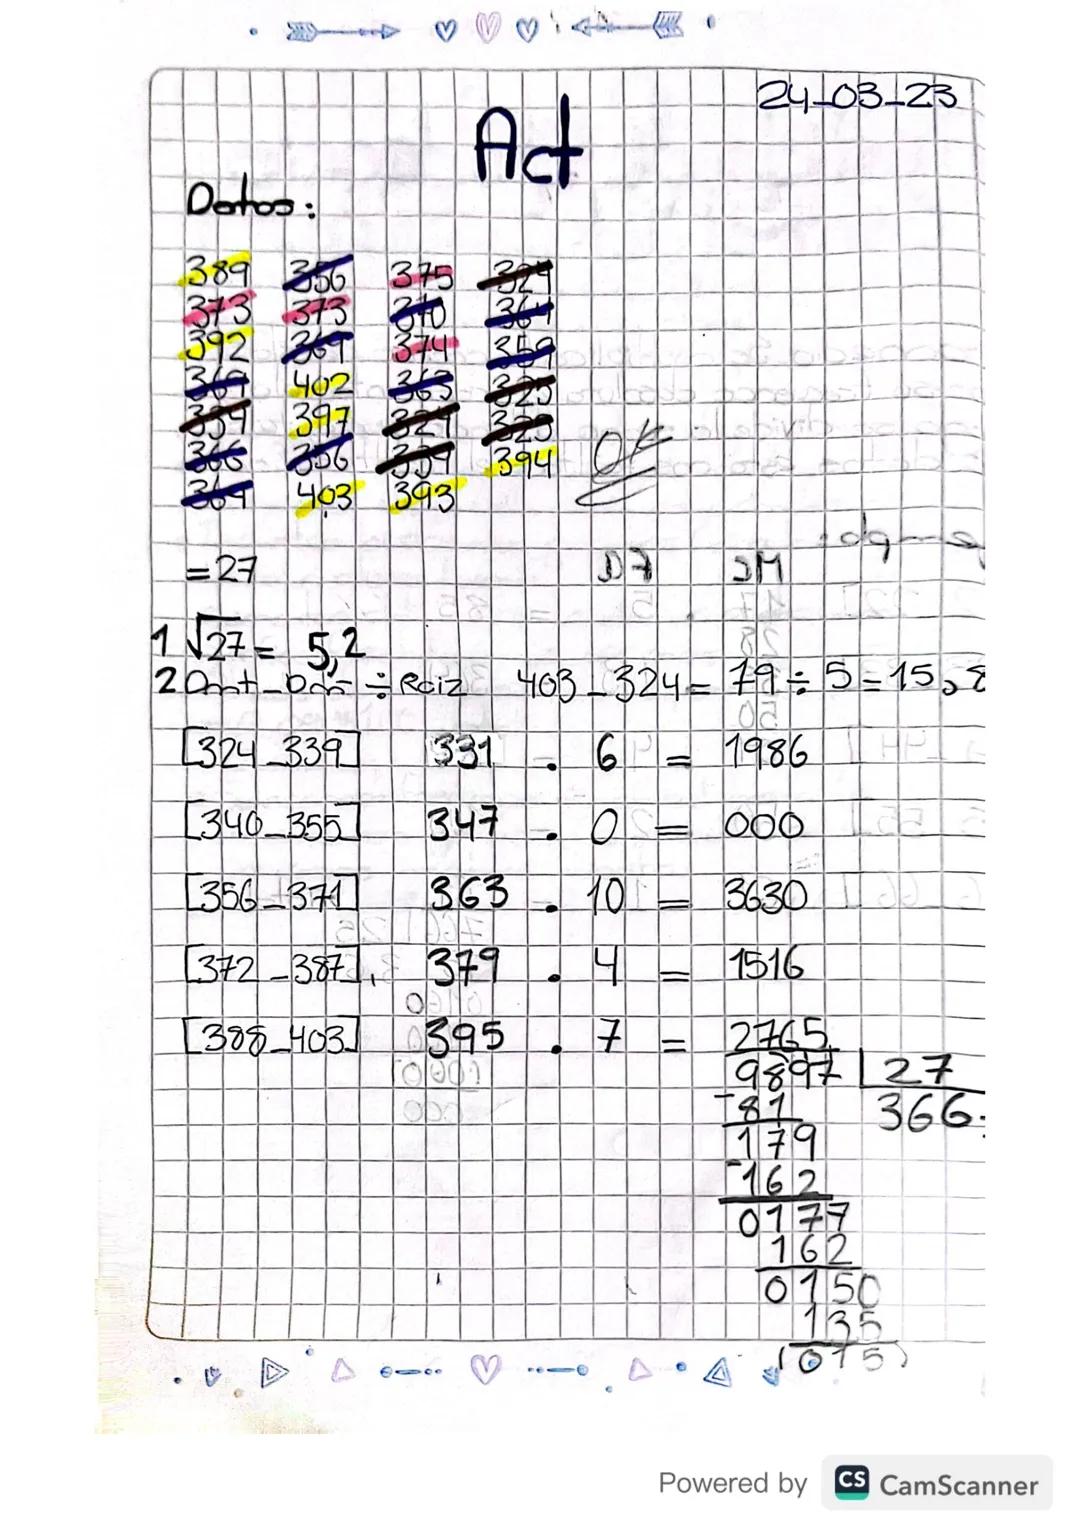 24-03-23
Act
Datos:
389 356 375 324
373 373 370 364
392 369 374 359
369 402 363 325
339 397 329 325
366 356 339 394
364 403 393
OK
=27
1 √27 = 5,2
2 Dat - Dat ÷ Raiz 403 - 324 = 79 ÷ 5 = 15,8
[324-339] 331 . 6 = 1986
[340-355] 347 . 0 = 000
[356-371] 363 . 10 = 3630
[372-387] 379 . 4 = 1516
[388-403] 395 . 7 = 2765
9897 27
-81 366.
179
-162
0177
162
0150
135
015
Powered by CS CamScanner